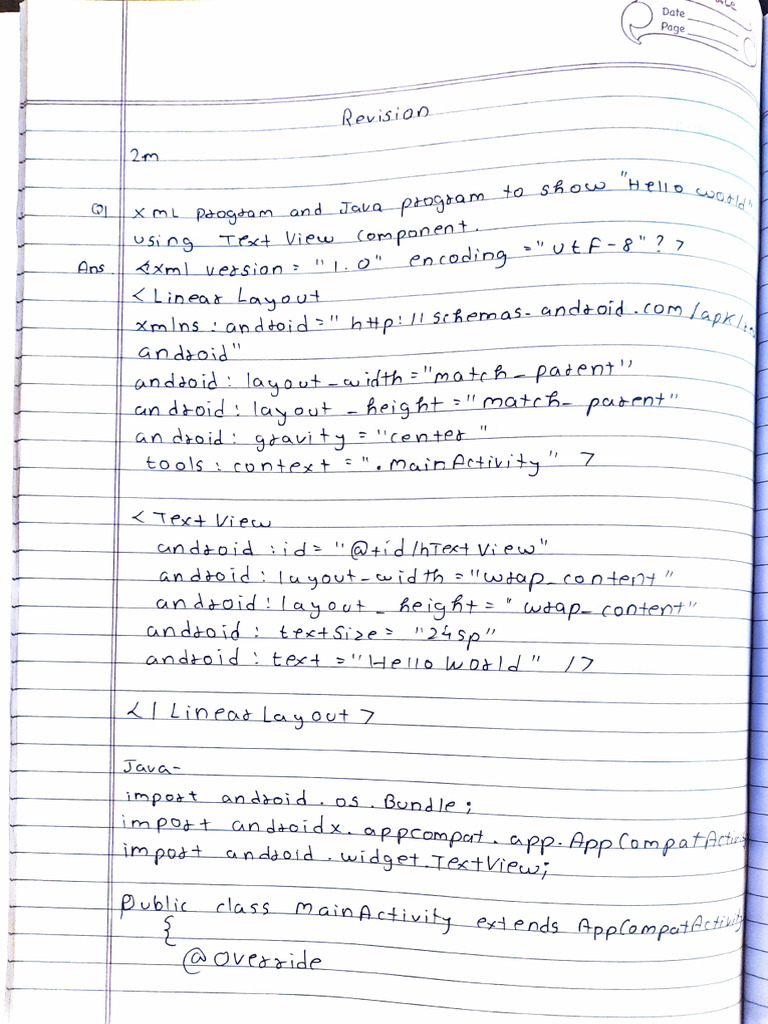 Date
Page
Revision
2m
Q1 xml program and Java program to show "Hello world"
using Text View component.
Ans <xml version = "1.0" encoding = "utf-8" ? >
< Linear Layout
xmlns : android = " http://schemas-android.com/apk/
android"
android : layout-width = "match_parent"
android : layout_height = "match_parent"
android : gravity = "center "
tools : context = ". mainActivity" >
< Text View
android : id = "@+id/hText View"
android : layout-width = "wrap_content"
android : layout_height = " wrap_content"
android : textSize = "24sp"
android : text = "Hello World" />
</ Linear Layout >
Java-
import android . os . Bundle ;
import androidx . appcompat . app . AppCompatActiv
import android . widget . TextView ;
public class mainActivity extends AppCompatActivity
{
@Override